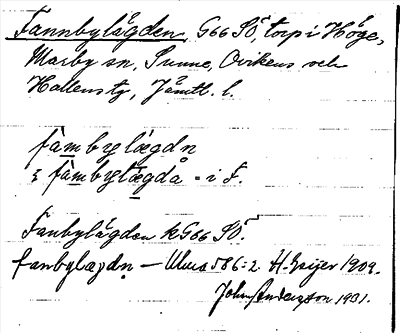 Fannbylägden, G66 SO, torp i Höge,
Marby sn, Sunne, Ovikens och
Hallens tg, Jämtl. l.
fàmbylægdn
i fàmbylægdå = i F.
Fanbylägden kG66 SO.
fanbylægdn — Ulma 586:2. H. Geijer 1909.
John 1931.